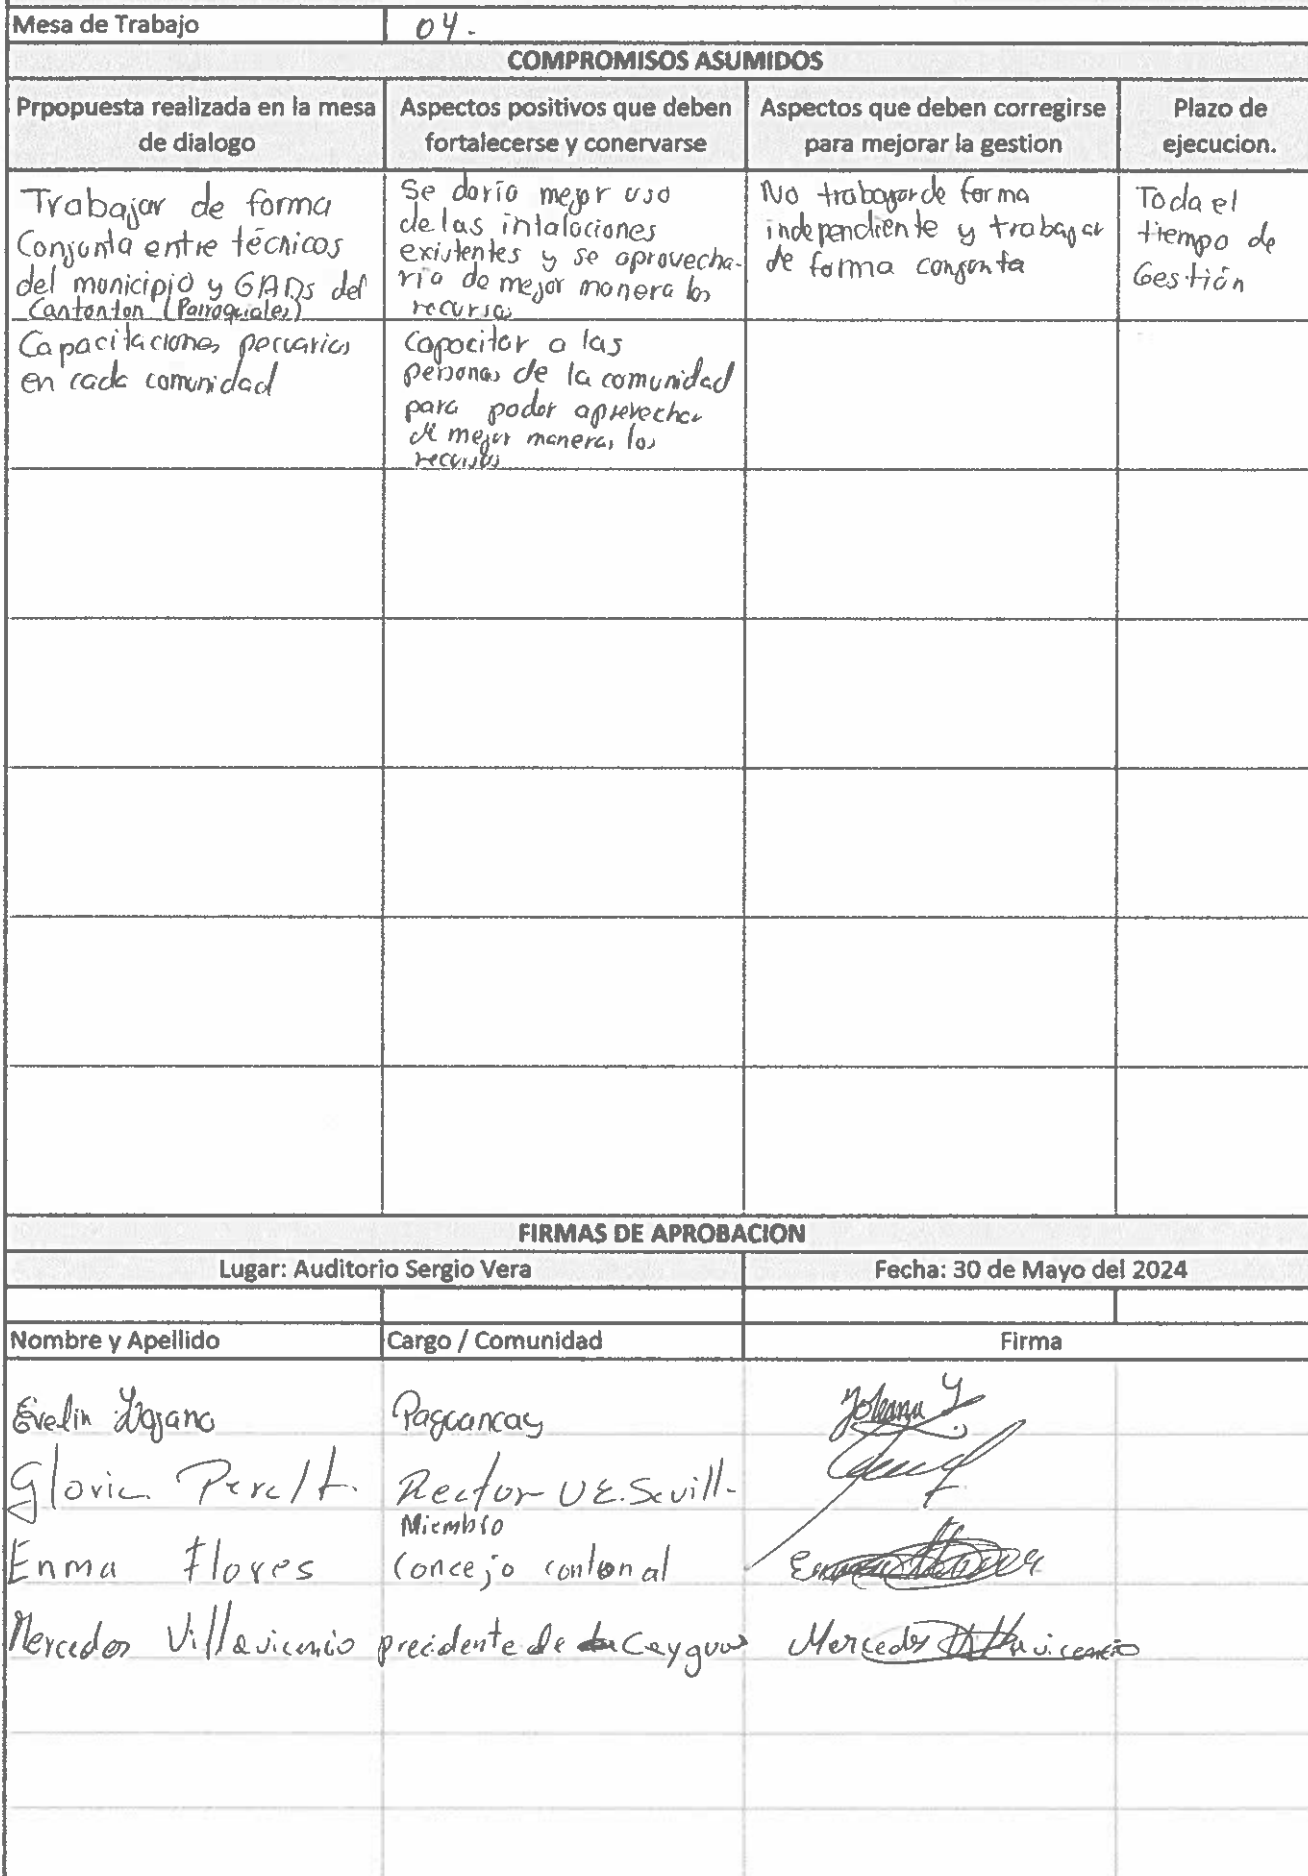 Mesa de Trabajo 04.
COMPROMISOS ASUMIDOS
Prpopuesta realizada en la mesa de dialogo
Aspectos positivos que deben fortalecerse y conervarse
Aspectos que deben corregirse para mejorar la gestion
Plazo de ejecucion.
Trabajar de forma
Conjunta entre técnicos
del municipio y GADs del
Cantonton (Parroquiales)
Se daría mejor uso
de las intalaciones
existentes y se aprovecha-
ría de mejor manera los
recursos
No trabajar de forma
independiente y trabajar
de forma conjunta
Toda el
tiempo de
Gestión
Capacitaciones pecuarias
en cada comunidad
Capacitar a las
personas de la comunidad
para poder aprovechar
de mejor manera, los
recursos
FIRMAS DE APROBACION
Lugar: Auditorio Sergio Vera Fecha: 30 de Mayo del 2024
Nombre y Apellido Cargo / Comunidad Firma
Evelin Paguancay
Gloria Peralt. Rector UE. Sevill-
Miembro
Enma Flores Concejo contonal
Mercedes Villavicencio precidente de Cayguas Mercedes Villavicencio